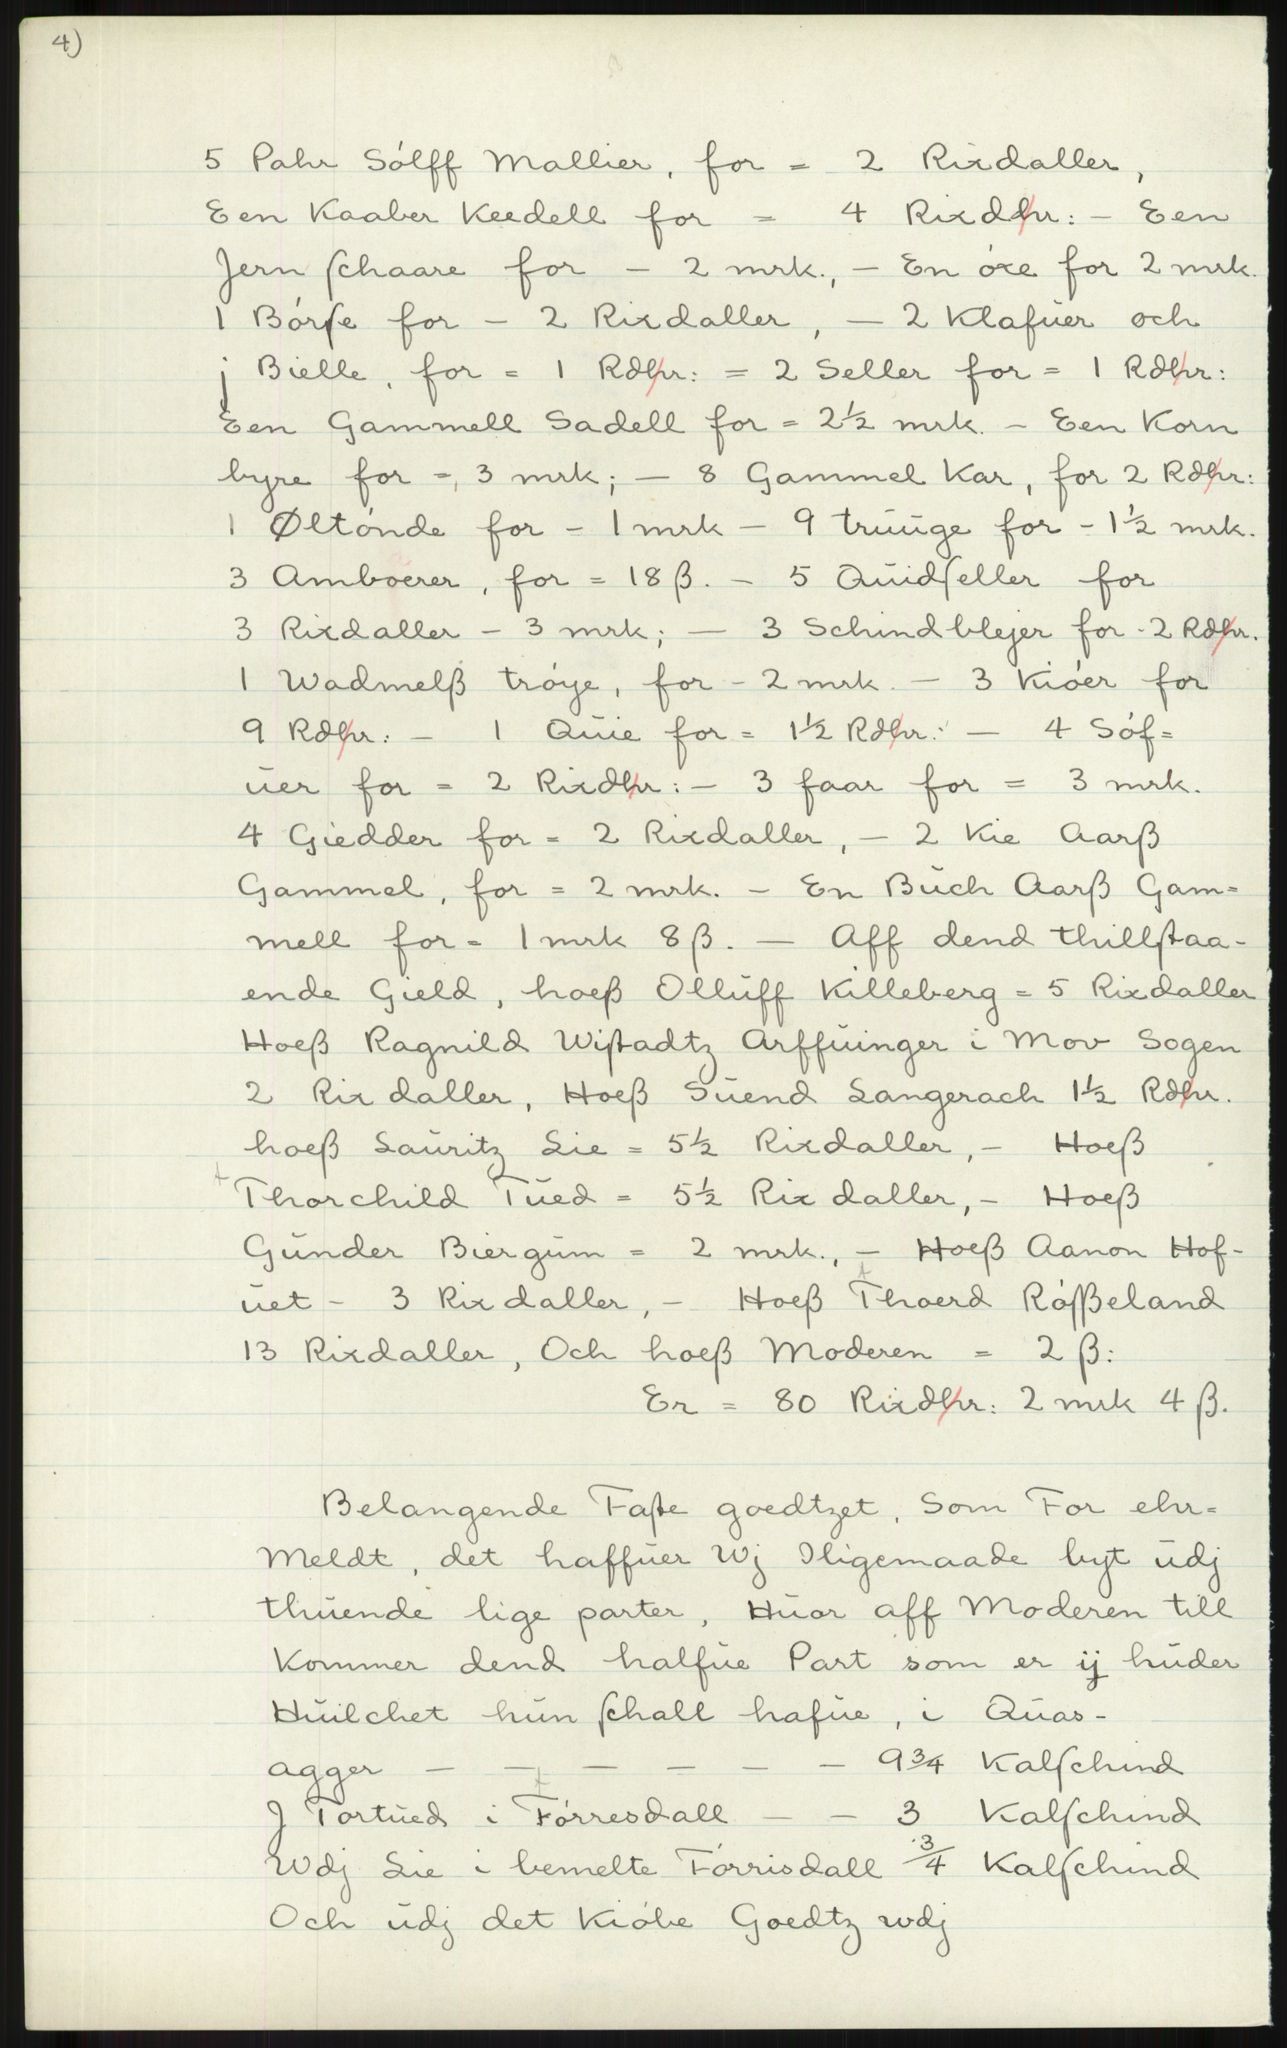 4)
5 Pahr Sólff Mallier, for = 2 Rixdaller,
Een Kaaber Keedell for = 4 Rixdlr: - Een
Jern schaare for - 2 mrk., - En óxe for 2 mrk.
1 Bórse for - 2 Rixdaller, - 2 Klafuer och
j Bielle, for = 1 Rdlr: = 2 Seller for = 1 Rdlr:
Een Gammell Sadell for = 2½ mrk. - Een Korn
byre for =, 3 mrk; - 8 Gammel Kar, for 2 Rdlr:
1 Øltónde for - 1 mrk - 9 truuge for - 1½ mrk.
3 Amboerer, for = 18 ß. - 5 Quidseller for
3 Rixdaller - 3 mrk; - 3 Schindblejer for - 2 Rdlr.
1 Wadmelß tróye, for - 2 mrk. - 3 Kióer for
9 Rdlr: - 1 Quie for = 1½ Rdlr: - 4 Sóf=
uer for = 2 Rixdlr: - 3 faar for = 3 mrk.
4 Giedder for = 2 Rixdaller, - 2 Kie Aarß
Gammel, for = 2 mrk. - En Buch Aarß Gam=
mell for = 1 mrk 8 ß. - Aff dend thillstaa-
ende Gield, hoeß Olluff Killeberg = 5 Rixdaller
Hoeß Ragnild Wistadtz Arffuinger i Mov Sogen
2 Rixdaller, Hoeß Suend Langerach 1½ Rdlr.
hoeß Lauritz Lie = 5½ Rixdaller, - Hoeß
Thorchild Tued = 5½ Rixdaller, - Hoeß
Gunder Biergum = 2 mrk., - Hoeß Aanon Hof-
uet - 3 Rixdaller, - Hoeß Thoerd Rósßeland
13 Rixdaller, Och hoeß Moderen = 2 ß:
Er = 80 Rixdlr: 2 mrk 4 ß.
Belangende Faste goedtzet, Som For ehr=
Meldt, det haffuer Wj Iligemaade byt udj
thuende lige parter, Huor aff Moderen till
Kommer dend halfue Part som er ij huder
Huilchet hun schall hafue, i Quas-
agger - - - - - - 9¾ Kalschind
J Tortued i Fórresdall - - 3 Kalschind
Wdj Lie i bemelte Fórrisdall ¾ Kalschind
Och udj det Kióbe Goedtz wdj